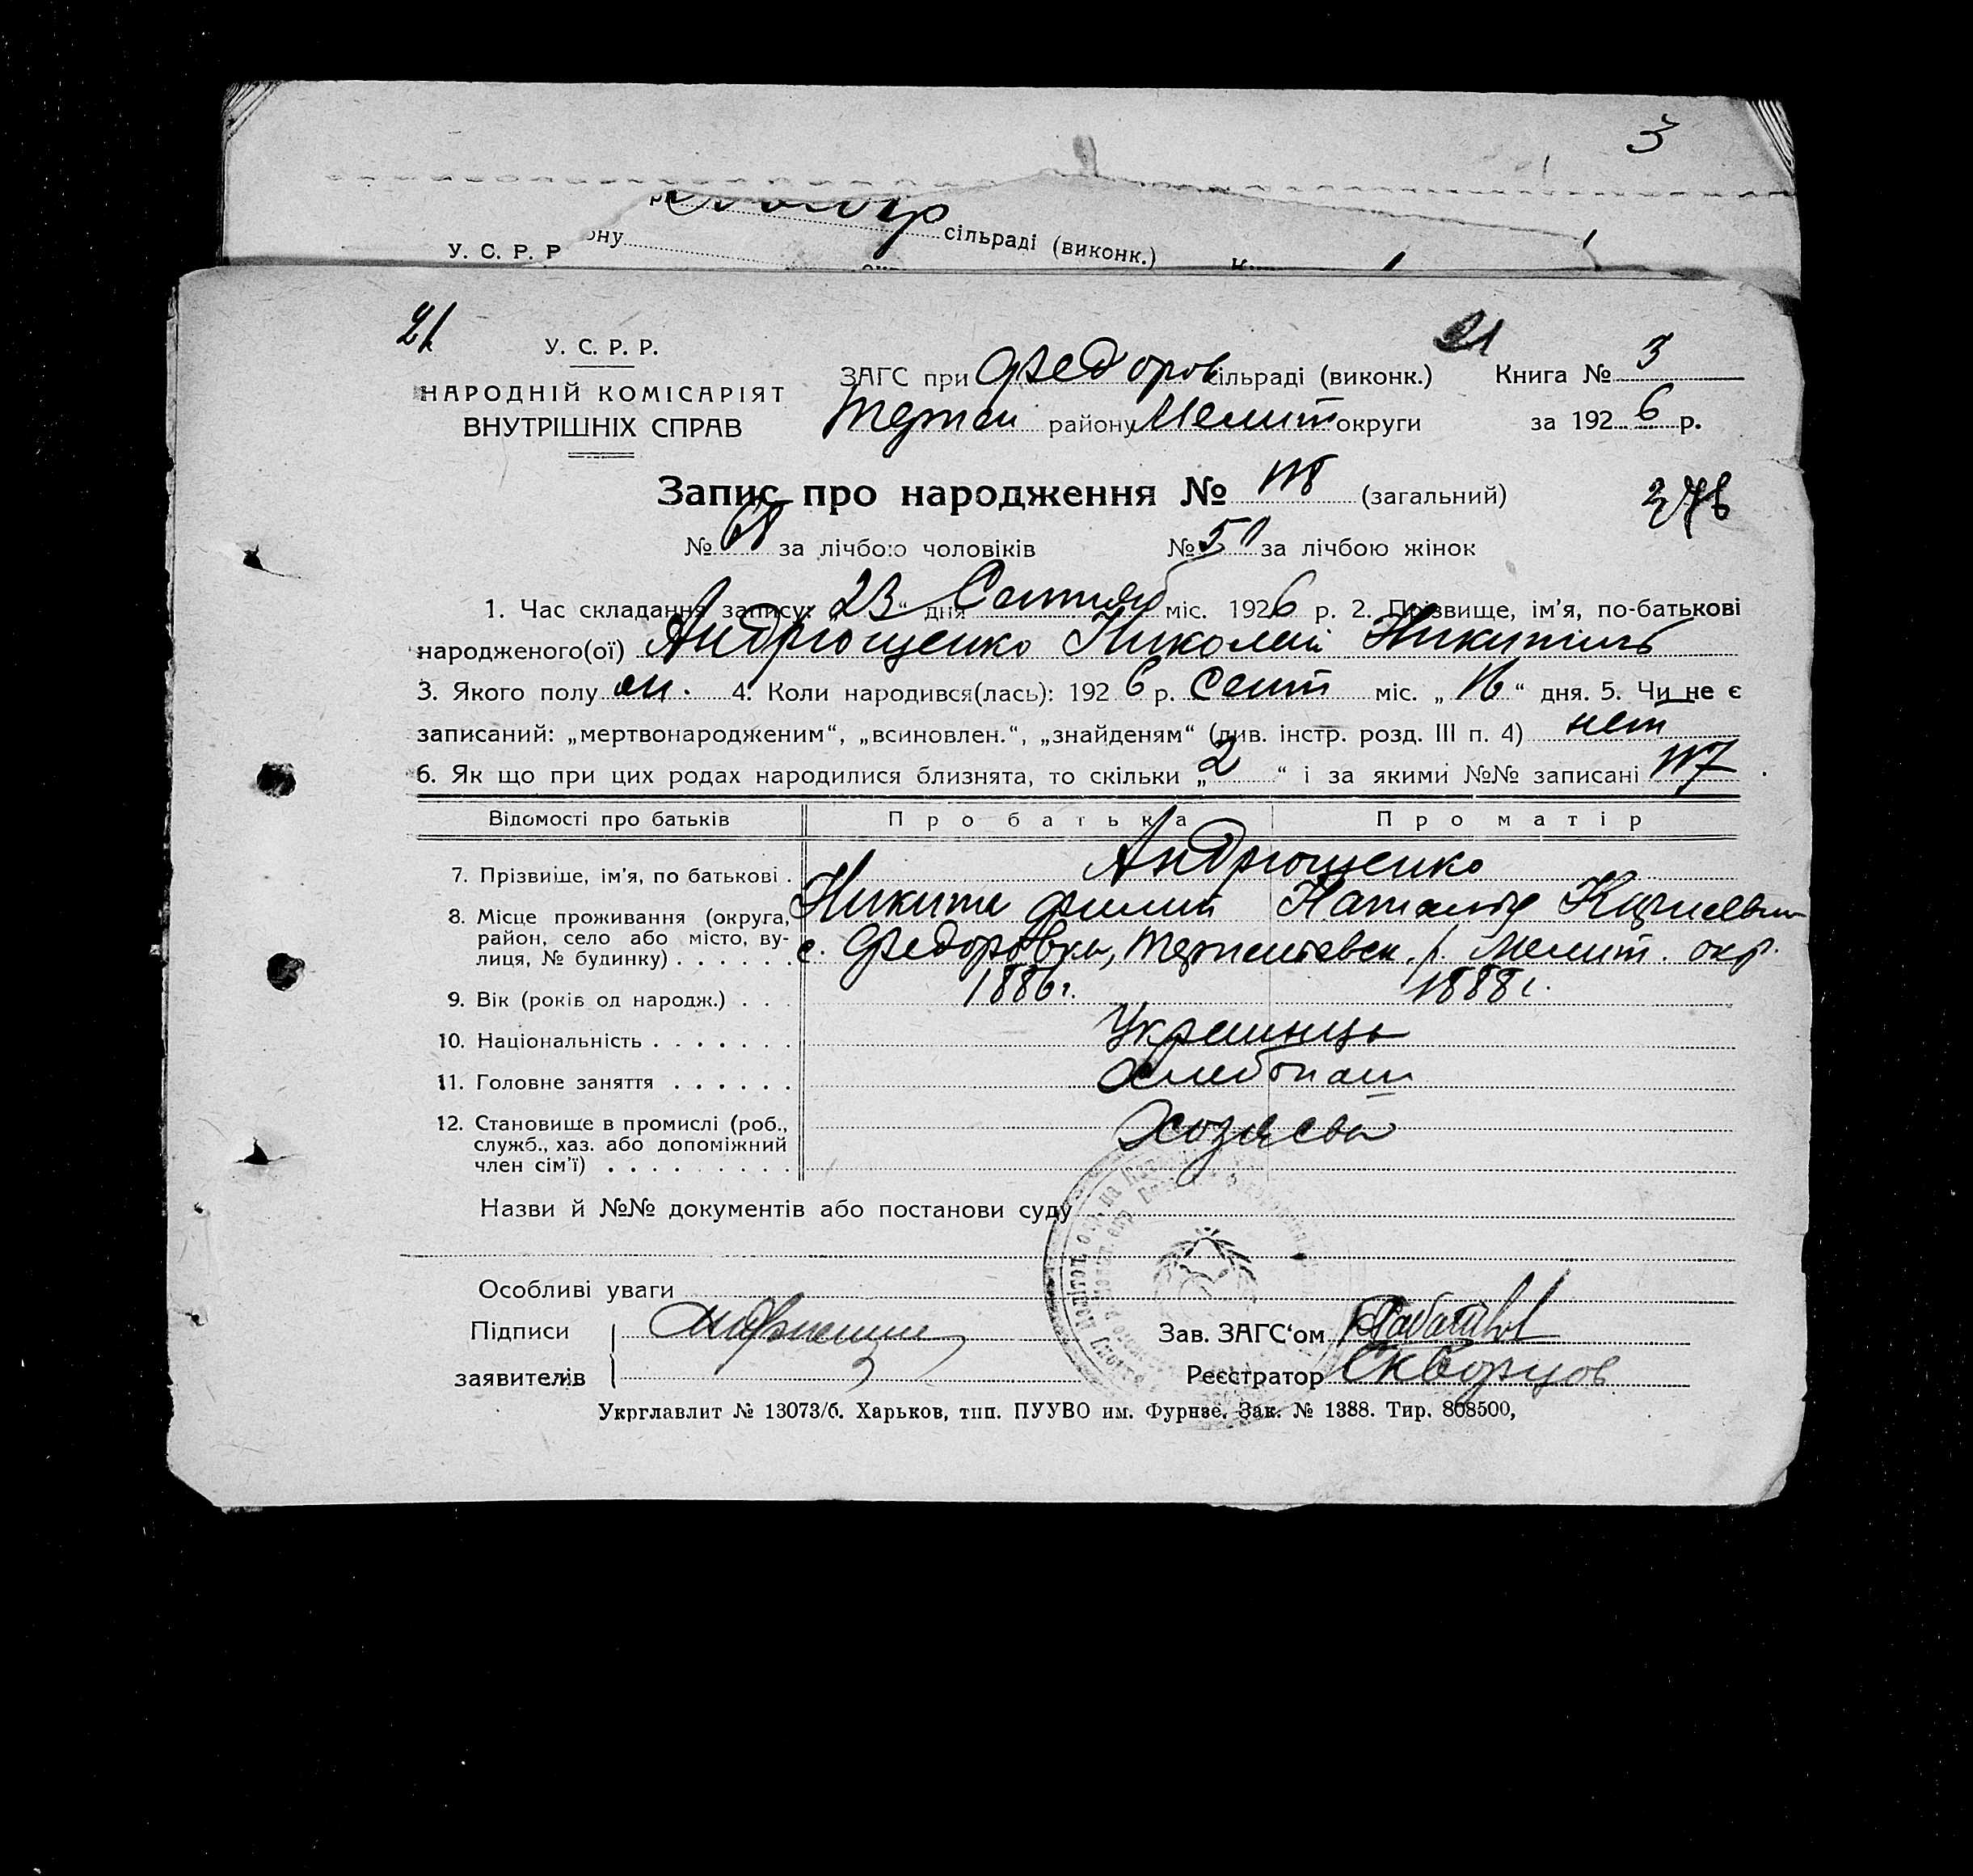 3
сільраді (виконк.)
У. С. Р. Р
21
21
У. С. Р. Р.
НАРОДНІЙ КОМІСАРІЯТ
ВНУТРІШНІХ СПРАВ
ЗАГС при Федоров сільраді (виконк.) Книга № 3
Терпен району Мелит округи за 1926 р.
Запис про народження № 118 (загальний)
276
№ 68 за лічбою чоловіків № 50 за лічбою жінок
1. Час складання запису: „23“ дня Сентяб міс. 1926 р. 2. Прізвище, ім'я, по-батькові
народженого(ої) Андрющенко Николай Никитич
3. Якого полу м. 4. Коли народився(лась): 1926 р. Сент міс. „16“ дня. 5. Чи не є
записаний: „мертвонародженим“, „всиновлен.“, „знайденям“ (див. інстр. розд. III п. 4) нет
6. Як що при цих родах народилися близнята, то скільки „2“ і за якими №№ записані 117
Відомості про батьків Про батька Про матір
7. Прізвище, ім'я, по батькові . Андрющенко
Никита Филип Наталія
8. Місце проживання (округа,
район, село або місто, ву-
лиця, № будинку) . . . . . . с. Федоровка, р. Мелит. окр.
9. Вік (років од народж.) . . . 1886г. 1888г.
10. Національність . . . . . . . Украинць
11. Головне заняття . . . . . . Хлебопаш
12. Становище в промислі (роб.,
служб., хаз. або допоміжний
член сім'ї) . . . . . . . . . Хозяева
Назви й №№ документів або постанови суду
Особливі уваги
Підписи
заявителів
Зав. ЗАГС‘ом
Реєстратор Скворцов
Укрглавлит № 13073/б. Харьков, тип. ПУУВО им. Фурнзе. Зак. № 1388. Тир. 808500,